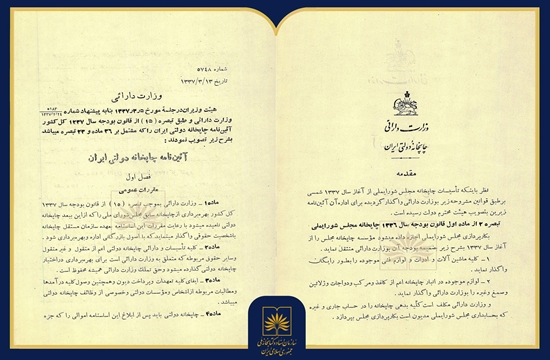 وزارت دارائی
چاپخانه دولتی ایران
مقدمه
نظر باینکه تأسیسات چاپخانه مجلس شورایملی از آغاز سال ۱۳۳۷ شمسی
برطبق قوانین مشروحه زیر بوزارت دارائی واگذار گردیده برای اداره آن آئین نامه
زیرین بتصویب هیئت محترم دولت رسیده است.
تبصره ۳ از ماده اول قانون بودجه سال ۱۳۳۶ چاپخانه مجلس شورایملی
بکارپردازی مجلس شورایملی اجازه داده میشود مؤسسه چاپخانه خود را از
آغاز سال ۱۳۳۷ بشرح زیر بوزارت دارائی منتقل نماید.
۱ - کلیه ماشین آلات و ادوات و لوازم فنی موجوده را بطور رایگان
واگذار نماید.
۲ - لوازم موجوده در انبار چاپخانه اعم از کاغذ ومرکب ودواجات وژلاتین
وصمغ وغیره را بوزارت دارائی واگذار نماید.
و وزارت دارائی مکلف است کلیه بدهی چاپخانه را در حساب جاری و غیره
که بحسابداری مجلس شورایملی مدیون است بکارپردازی مجلس بپردازد.
شماره ۵۷۴۸
تاریخ ۱۳۳۷/۳/۱۳
وزارت دارائی
هیئت وزیران درجلسه مورخ ۱۳۳۷/۳/۵ بنا به پیشنهاد شماره
وزارت دارائی و طبق تبصره (۱۵) از قانون بودجه سال ۱۳۳۷ کل کشور
آئین نامه چاپخانه دولتی ایران را که مشتمل بر ۳۶ ماده و ۲۳ تبصره میباشد
بشرح زیر تصویب نمودند:
آئین نامه چاپخانه دولتی ایران
فصل اول
مقررات عمومی
ماده۱ - وزارت دارائی بموجب تبصره (۱۵) از قانون بودجه سال ۱۳۳۷
کل کشور بهره برداری از چاپخانه سابق مجلس شورای ملی را که از این ببعد چاپخانه
دولتی نامیده میشود با رعایت مقررات این اساسنامه بعهده سازمان مستقل چاپخانه
باشخصیت حقوقی واگذار مینماید که با اصول بازرگانی اداره وبهره برداری شود.
ماده۲ - کلیه تأسیسات و دارائی چاپخانه دولتی اعم از منقول و غیر منقول
وسایر حقوق مربوطه که متعلق به وزارت دارائی است برای بهره برداری دراختیار
چاپخانه دولتی گذارده میشود وحق تملک وزارت دارائی همیشه محفوظ است.
ماده۳ - ایفای کلیه تعهدات وپرداخت دیون وهمچنین وصول کلیه درآمدها
ومطالبات مربوطه از اشخاص ومؤسسات دولتی وخصوصی از وظائف چاپخانه دولتی
میباشد.
ماده۴ - چاپخانه دولتی باید پس از ابلاغ این اساسنامه اموالی را که جزء
سازمان اسناد و کتابخانه ملی
جمهوری اسلامی ایران